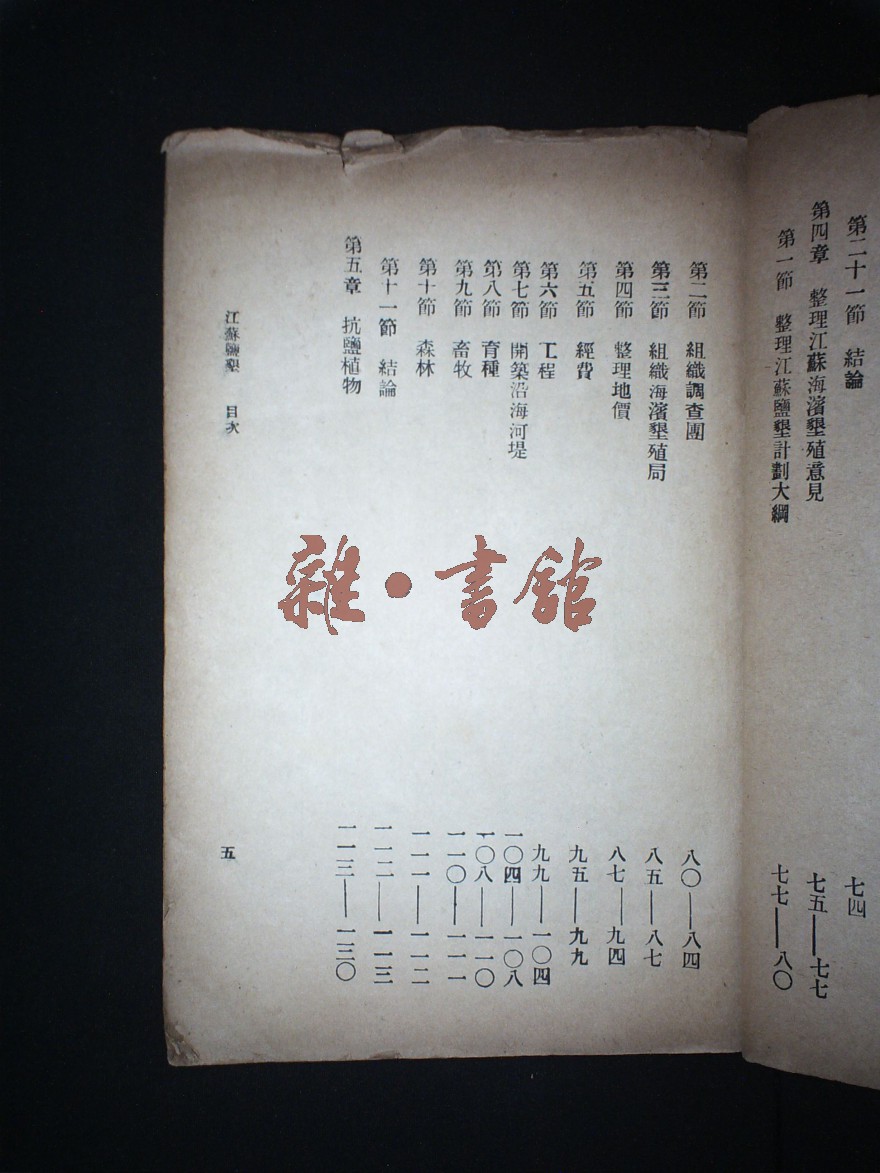 第二十一節　結論　七四
第四章　整理江蘇海濱墾殖意見　七五——七七
第一節　整理江蘇鹽墾計劃大綱　七七——八〇
第二節　組織調查團　八〇——八四
第三節　組織海濱墾殖局　八五——八七
第四節　整理地價　八七——九四
第五節　經費　九五——九九
第六節　工程　九九——一〇四
第七節　開築沿海河堤　一〇四——一〇八
第八節　育種　一〇八——一一〇
第九節　畜牧　一一〇——一一一
第十節　森林　一一一——一一二
第十一節　結論　一一二——一一三
第五章　抗鹽植物　一一三——一三〇
江蘇鹽墾　目次　五
雜·書館